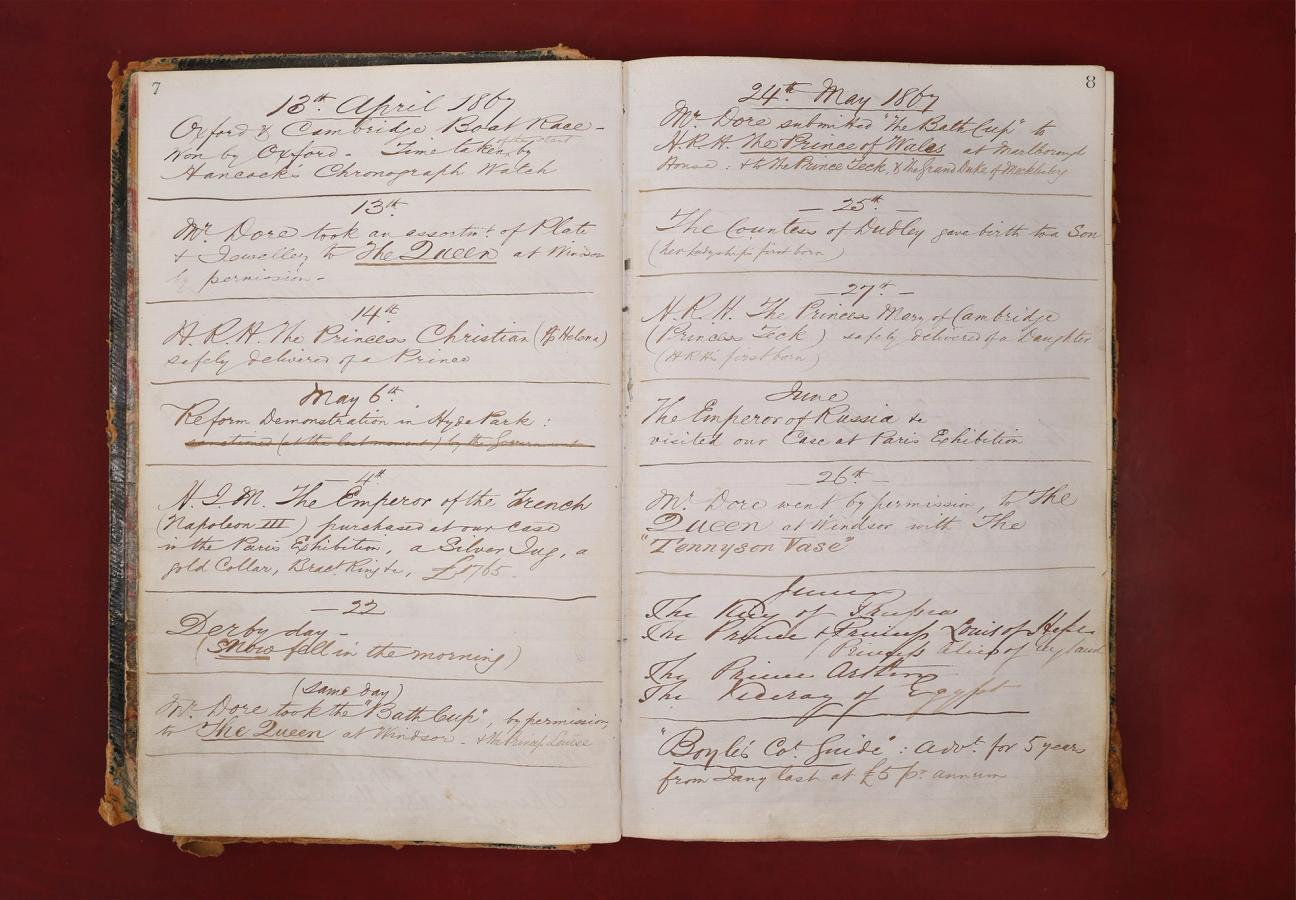 7
13th April 1867
Oxford & Cambridge Boat Race -
Won by Oxford - Time taken of the start by
Hancock's Chronograph Watch
13th
Mr. Dore took an assortmt of Plate
& Jewellery to The Queen at Windsor
by permission -
14th
H.R.H. The Princess Christian (Ps Helena)
safely delivered of a Prince
May 6th
Reform Demonstration in Hyde Park :
(at the last moment) by the Government
- 4th
H.I.M. The Emperor of the French
(Napoleon III) purchased at our Case
in the Paris Exhibition, a Silver Jug, a
gold Collar, Bract Ring &c, £1765
- 22
Derby day -
(Snow fell in the morning)
(same day)
Mr. Dore took the "Bath Cup", by permission,
to The Queen at Windsor - & the Princess Louise
8
24th May 1867
Mr. Dore submitted "The Bath Cup" to
H.R.H. The Prince of Wales at Marlborough
House : & to The Prince Teck, & The Grand Duke of Mecklenburg
- 25th -
The Countess of Dudley gave birth to a Son
(Her Ladyship's first born)
- 27th -
H.R.H. The Princess Mary of Cambridge
(Princess Teck) safely delivered of a Daughter
(H.R.H's first born)
June
The Emperor of Russia &c
visited our Case at Paris Exhibition
- 26th -
Mr. Dore went by permission to The
Queen at Windsor with The
"Tennyson Vase"
June
The King of Prussia
The Prince & Princess Louis of Hesse
(Princess Alice of England
The Prince Arthur
The Viceroy of Egypt
"Boyle's Cot Guide" : advt. for 5 years
from Jany last at £5 pr. annum